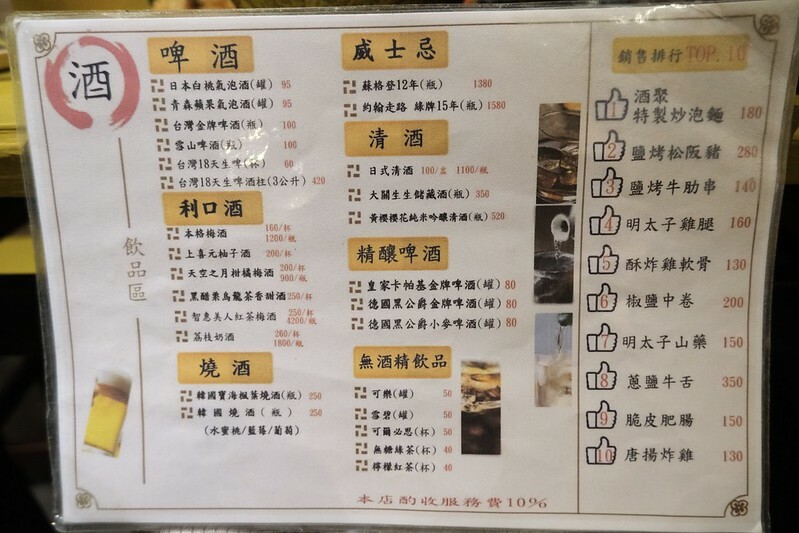 酒
飲品區
啤酒
日本白桃氣泡酒(罐) 95
青森蘋果氣泡酒(罐) 95
台灣金牌啤酒(瓶) 100
雪山啤酒(瓶) 100
台灣18天生啤(杯) 60
台灣18天生啤酒柱(3公升) 420
利口酒
本格梅酒 160/杯 1200/瓶
上喜元柚子酒 200/杯
天空之月柑橘梅酒 200/杯 900/瓶
黑醋栗烏龍茶香甜酒 250/杯
智惠美人紅茶梅酒 250/杯 4200/瓶
荔枝奶酒 260/杯 1800/瓶
燒酒
韓國寶海楓葉燒酒(瓶) 250
韓國燒酒(瓶) 250
(水蜜桃/藍莓/葡萄)
威士忌
蘇格登12年(瓶) 1380
約翰走路 綠牌15年(瓶) 1580
清酒
日式清酒 100/盅 1100/瓶
大關生生儲藏酒(瓶) 350
黃櫻櫻花純米吟釀清酒(瓶) 520
精釀啤酒
皇家卡帕基金牌啤酒(罐) 80
德國黑公爵金牌啤酒(罐) 80
德國黑公爵小麥啤酒(罐) 80
無酒精飲品
可樂(罐) 50
雪碧(罐) 50
可爾必思(杯) 50
無糖綠茶(杯) 40
檸檬紅茶(杯) 40
銷售排行TOP.10
1 酒聚
特製炒泡麵 180
2 鹽烤松阪豬 280
3 鹽烤牛肋串 140
4 明太子雞腿 160
5 酥炸雞軟骨 130
6 椒鹽中卷 200
7 明太子山藥 150
8 蔥鹽牛舌 350
9 脆皮肥腸 150
10 唐揚炸雞 130
本店酌收服務費10%